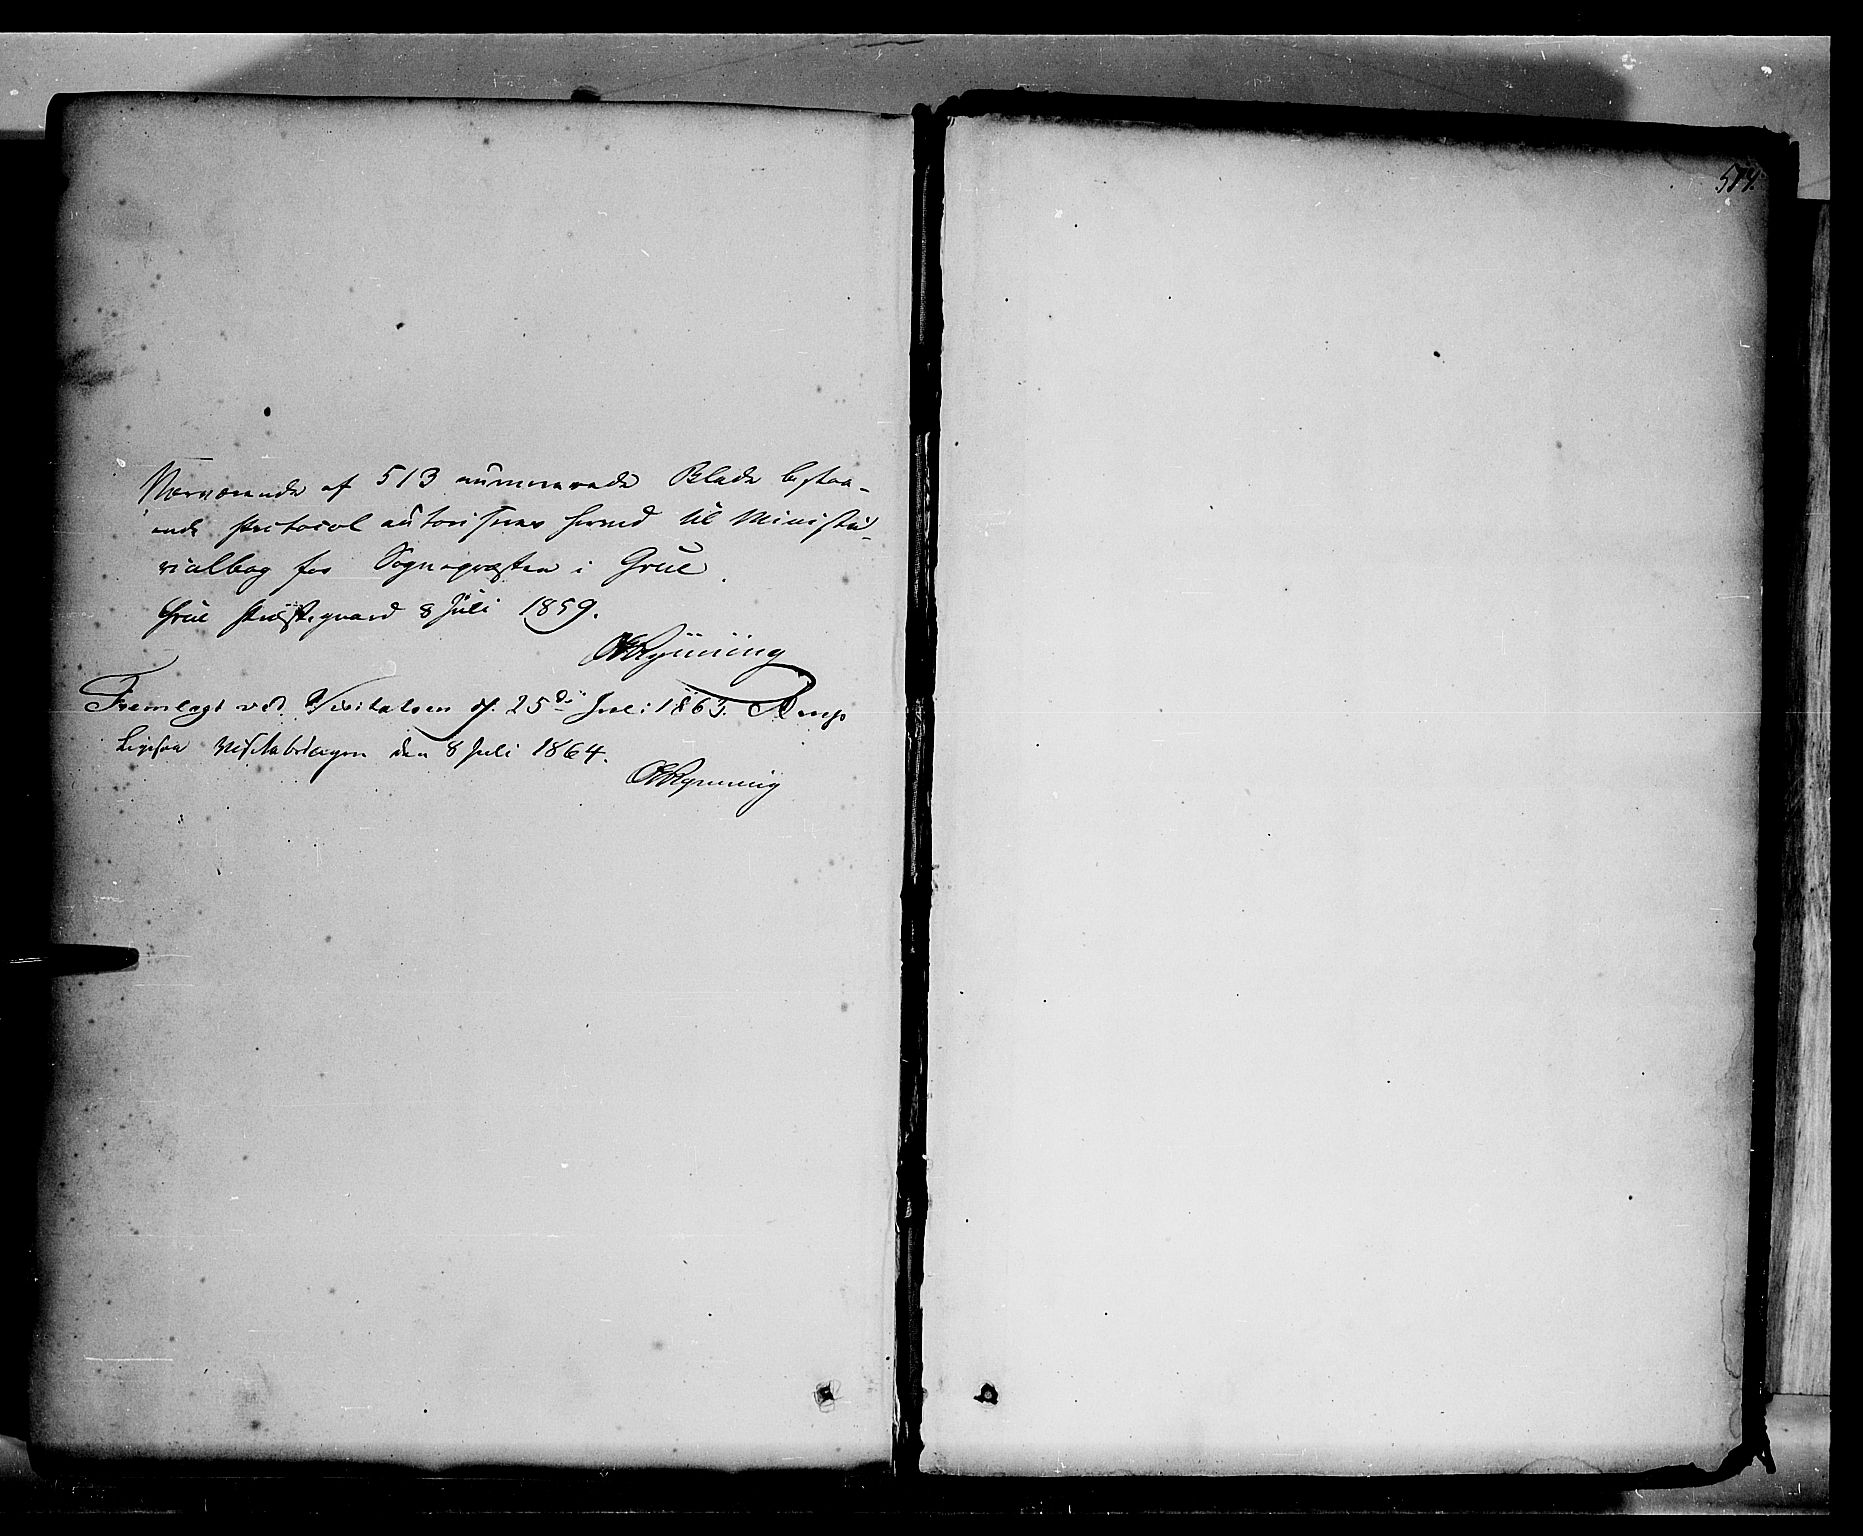 514.
Nærværende af 513 nummerede Blade bestaa-
ende Protocol autoriseres herved til Ministe-
rialbog for Sognepræsten i Grue.
Grue Præstegaard 8 Juli 1859.
Rynning
Fremlagt ved Visitatsen d. 25de Juli 1863.
Ligesaa Visitatsdagen den 8 Juli 1864.
Rynning